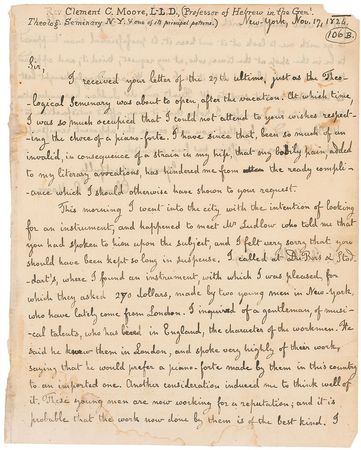 Rev Clement C. Moore, L.L.D., (Professor of Hebrew in the Genl.
Theolog. Seminary N-Y. & one of its principal patrons.)
New-York, Nov. 17, 1824.
(106 B.)
Sir,
I received your letter of the 27th ultimo, just as the Theo-
-logical Seminary was about to open after the vacation. At which time
I was so much occupied that I could not attend to your wishes respect-
-ing the choice of a piano-forte. I have since that, been so much of an
invalid, in consequence of a strain in my hip, that my bodily pain added
to my literary avocations has hindered me from the ready compli-
-ance which I should otherwise have shown to your request.
This morning I went into the city with the intention of looking
for an instrument, and happened to meet Mr Ludlow who told me that
you had spoken to him upon the subject, and I felt very sorry that you
should have been kept so long in suspense. I called at Du Bois & Stod-
-dart's, where I found an instrument, with which I was pleased, for
which they asked 270 dollars, made by two young men in New-York,
who have lately come from London. I inquired of a gentleman, of musi-
-cal talents, who has been in England, the character of the workmen. He
said he knew them in London, and spoke very highly of their work,
saying that he would prefer a piano-forte made by them in this country
to an imported one. Another consideration induced me to think well of
it. These young men are now working for a reputation; and it is
probable that the work now done by them is of the best kind. I